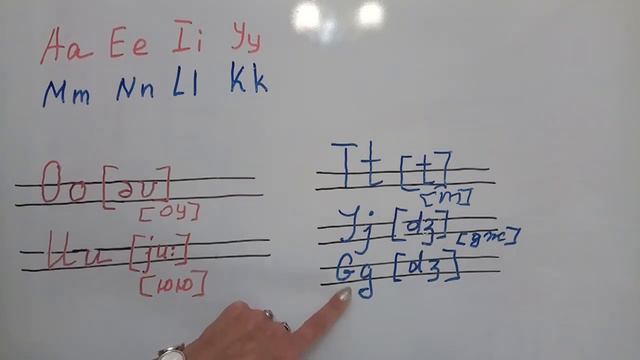 Aa Ee Ii Yy
Mm Nn Ll Kk
Oo [əʊ]
[оу]
Uu [ju:]
[юю]
Tt [t]
[т]
Jj [dʒ]
[дж]
Gg [dʒ]